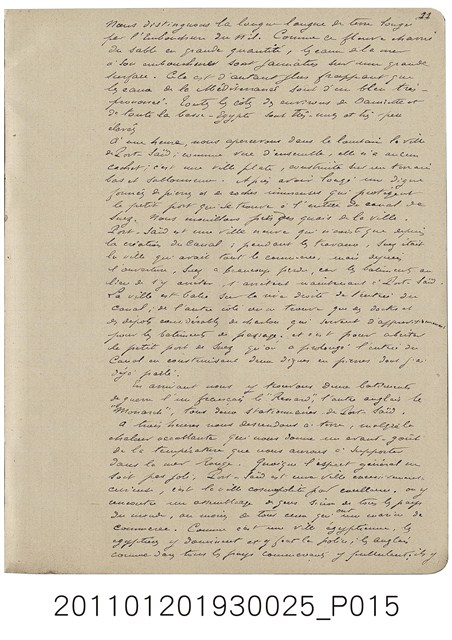 22
Nous distinguons la longue langue de terre longée
par l'embouchure du Nil. Comme ce fleuve charrie
du sable en grande quantité, les eaux de la mer
à son embouchure sont jaunâtres sur une grande
surface. Cela est d'autant plus frappant que
les eaux de la Méditerranée sont d'un bleu très
prononcé. Toutes les côtes des environs de Damiette et
de toute la basse-Egypte sont très nues et très peu
élevées.
A une heure, nous apercevons dans le lointain la ville
de Port-Saïd; comme vue d'ensemble, elle n'a aucun
cachet; c'est une ville plate, construite sur un terrain
bas et sablonneux. Après avoir longé une digue
formée de pierres et de roches immenses qui protègent
le petit port qui se trouve à l'entrée du canal de
Suez, nous mouillons près des quais de la ville.
Port-Saïd est une ville neuve qui n'existe que depuis
la création du Canal; pendant les travaux, Suez était
la ville qui avait tout le commerce, mais depuis
l'ouverture, Suez a beaucoup perdu, car les bâtiments au
lieu de s'y arrêter, s'arrêtent maintenant à Port-Saïd.
La ville est bâtie sur la rive droite de l'entrée du
Canal; de l'autre côté on ne trouve que des docks et
des dépôts considérables de charbon qui servent d'approvisionnement
pour les bâtiments de passage. et c'est pour abriter
le petit port de Suez qu'on a prolongé l'entrée du
Canal en construisant deux digues en pierres dont j'ai
déjà parlé.
En arrivant nous y trouvons deux bâtiments
de guerre l'un français le "Renard", l'autre anglais le
"Monarch", tous deux stationnaires de Port-Saïd.
A trois heures nous descendons à terre, malgré la
chaleur accablante qui nous donne un avant-goût
de la température que nous aurons à supporter
dans la mer Rouge. Quoique l'aspect général ne
soit pas joli, Port-Saïd est une ville excessivement
curieuse, c'est la ville cosmopolite par excellence, on y
rencontre un assemblage de gens de tous les pays
du monde, au moins de tous ceux qui ont une marine de
commerce. Comme c'est une ville égyptienne, les
égyptiens y dominent et y font la police; les anglais
comme dans tous les pays commerciaux y pullulent; il y
201101201930025_P015